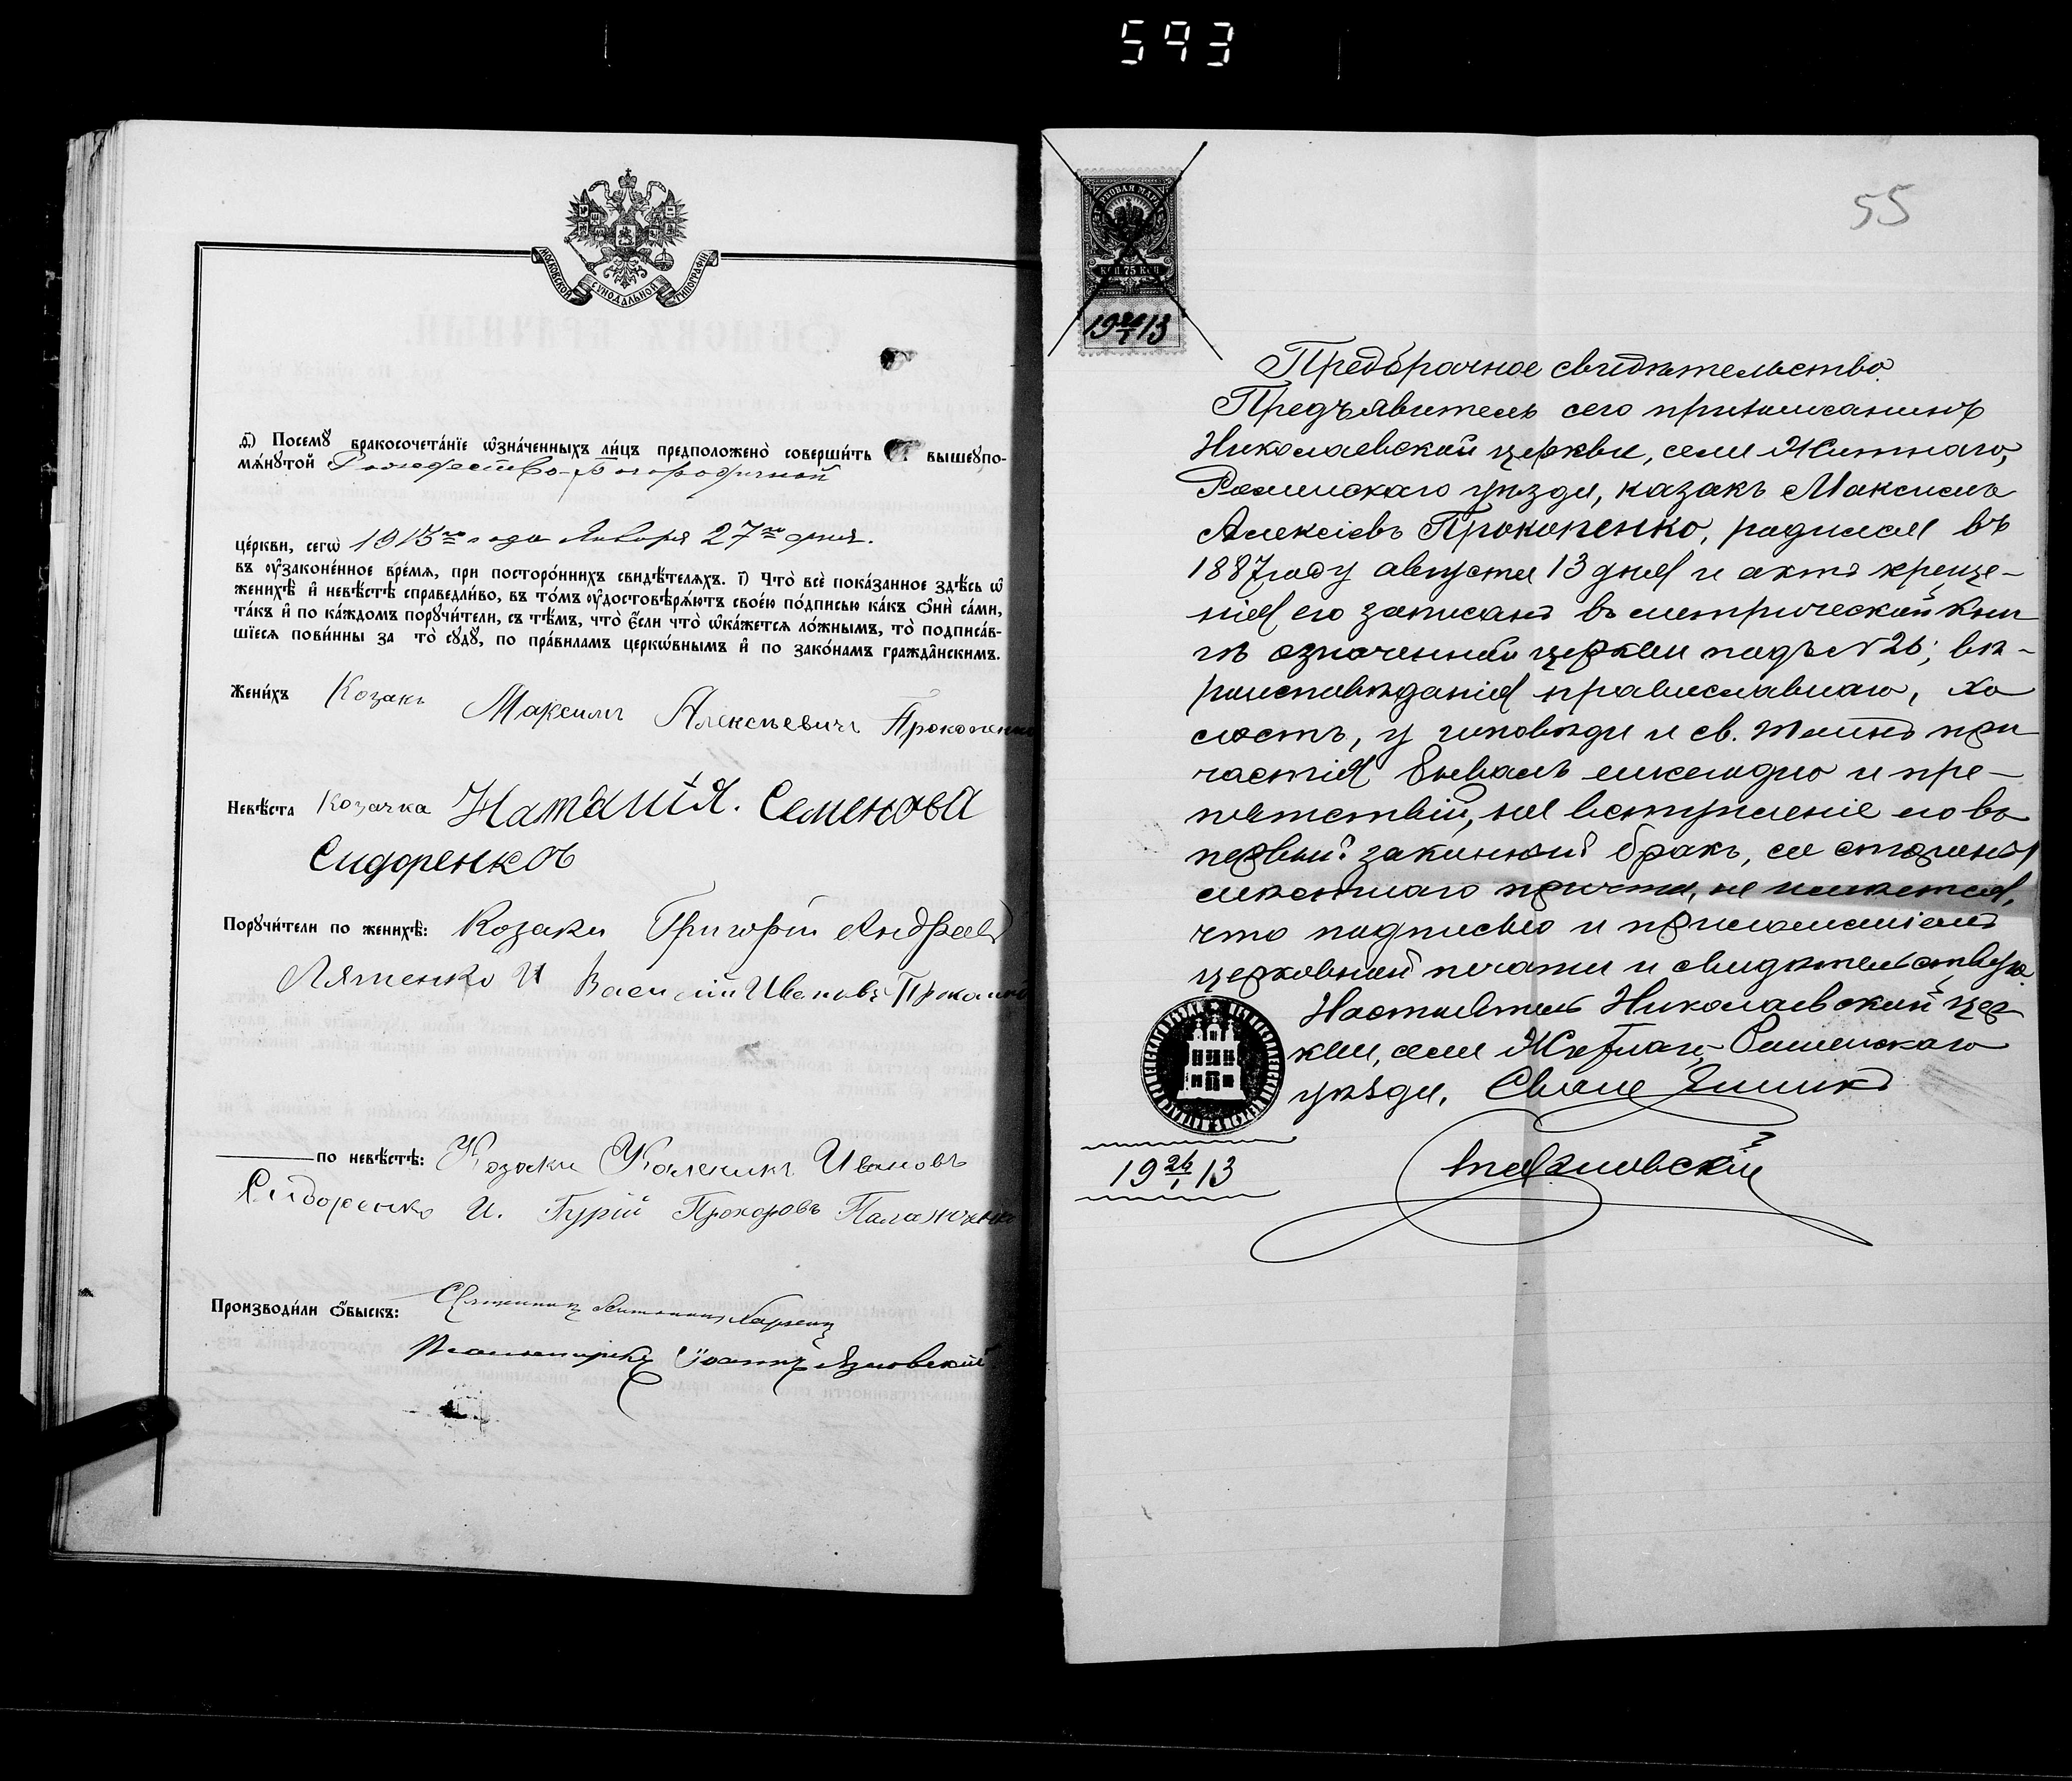 593
МОСКОВСКОЙ СѴНОДАЛЬНОЙ ТИПОГРАФІИ
д҃) Посемꙋ̀ бракосочета́нїе ѡ҆зна́ченныхъ ли́цъ предположено̀ соверши́ть въ вышеꙋпо-
мѧ́нꙋтой Рождество-Богородичной
це́ркви, сегѡ̀ 1913го года Января 27го дня.
въ ᲂу҆зако́ненное вре́мѧ, при посторо́ннихъ свидѣ́телѧхъ. і҃) Что̀ всѐ пока́занное здѣ́сь ѡ҆
женихѣ̀ и҆ невѣ́стѣ справедли́во, въ то́мъ ᲂу҆достовѣрѧ́ютъ свое́ю по́дписью ка́къ ѻ҆нѝ са́ми,
та́къ и҆ по ка́ждомъ порꙋчи́тели, съ тѣ́мъ, что̀ є҆́сли что̀ ѡ҆ка́жетсѧ ло́жнымъ, то̀ подписа́в-
шїесѧ пови́нны за то̀ сꙋдꙋ̀, по пра́виламъ церко́внымъ и҆ по зако́намъ гражда̑нскимъ.
Жени́хъ Козакъ Максимъ Алексѣевичъ Прокопенко
Невѣ́ста Козачка Наталія. Семенова
Сидоренковъ
Порꙋчи́тели по женихѣ̀: Козаки Григорій Андреевъ
Ляшенко И Василій Ивановъ Прокопенко
по невѣ́стѣ: Козаки Каленикъ Ивановъ
Сидоренко И. Гурій Прохоровъ Паламаренко
Производи́ли ѻ҆́быскъ: Священникъ
Псаломщикъ Іоаннъ Язловскій
55
ГЕРБОВАЯ МАРКА
КОП 75 КОП
19 26/I 13
Предбрачное свидѣтельство.
Предъявитель сего прихожанинъ
Николаевской церкви, села Житнаго,
Роменскаго уѣзда, казакъ Максимъ
Алексіевъ Прокопенко, родился въ
1887 году августа 13 дня и актъ креще-
нія его записанъ въ метрической кни
гѣ означенной церкви подъ №26; вѣ-
роисповѣданія православнаго, хо
лостъ, у исповѣди и св. Таинъ при
частія бывалъ ежегодно и пре-
пятствій, на вступленіе его въ
первый законный бракъ, со стороны
мѣстнаго причта, не имѣется,
что подписью и приложеніемъ
церковной печати и свидѣтельствую.
Настоятель Николаевской цер
кви, села Житнаго Роменскаго
уѣзда, Священникъ
19 26/I 13